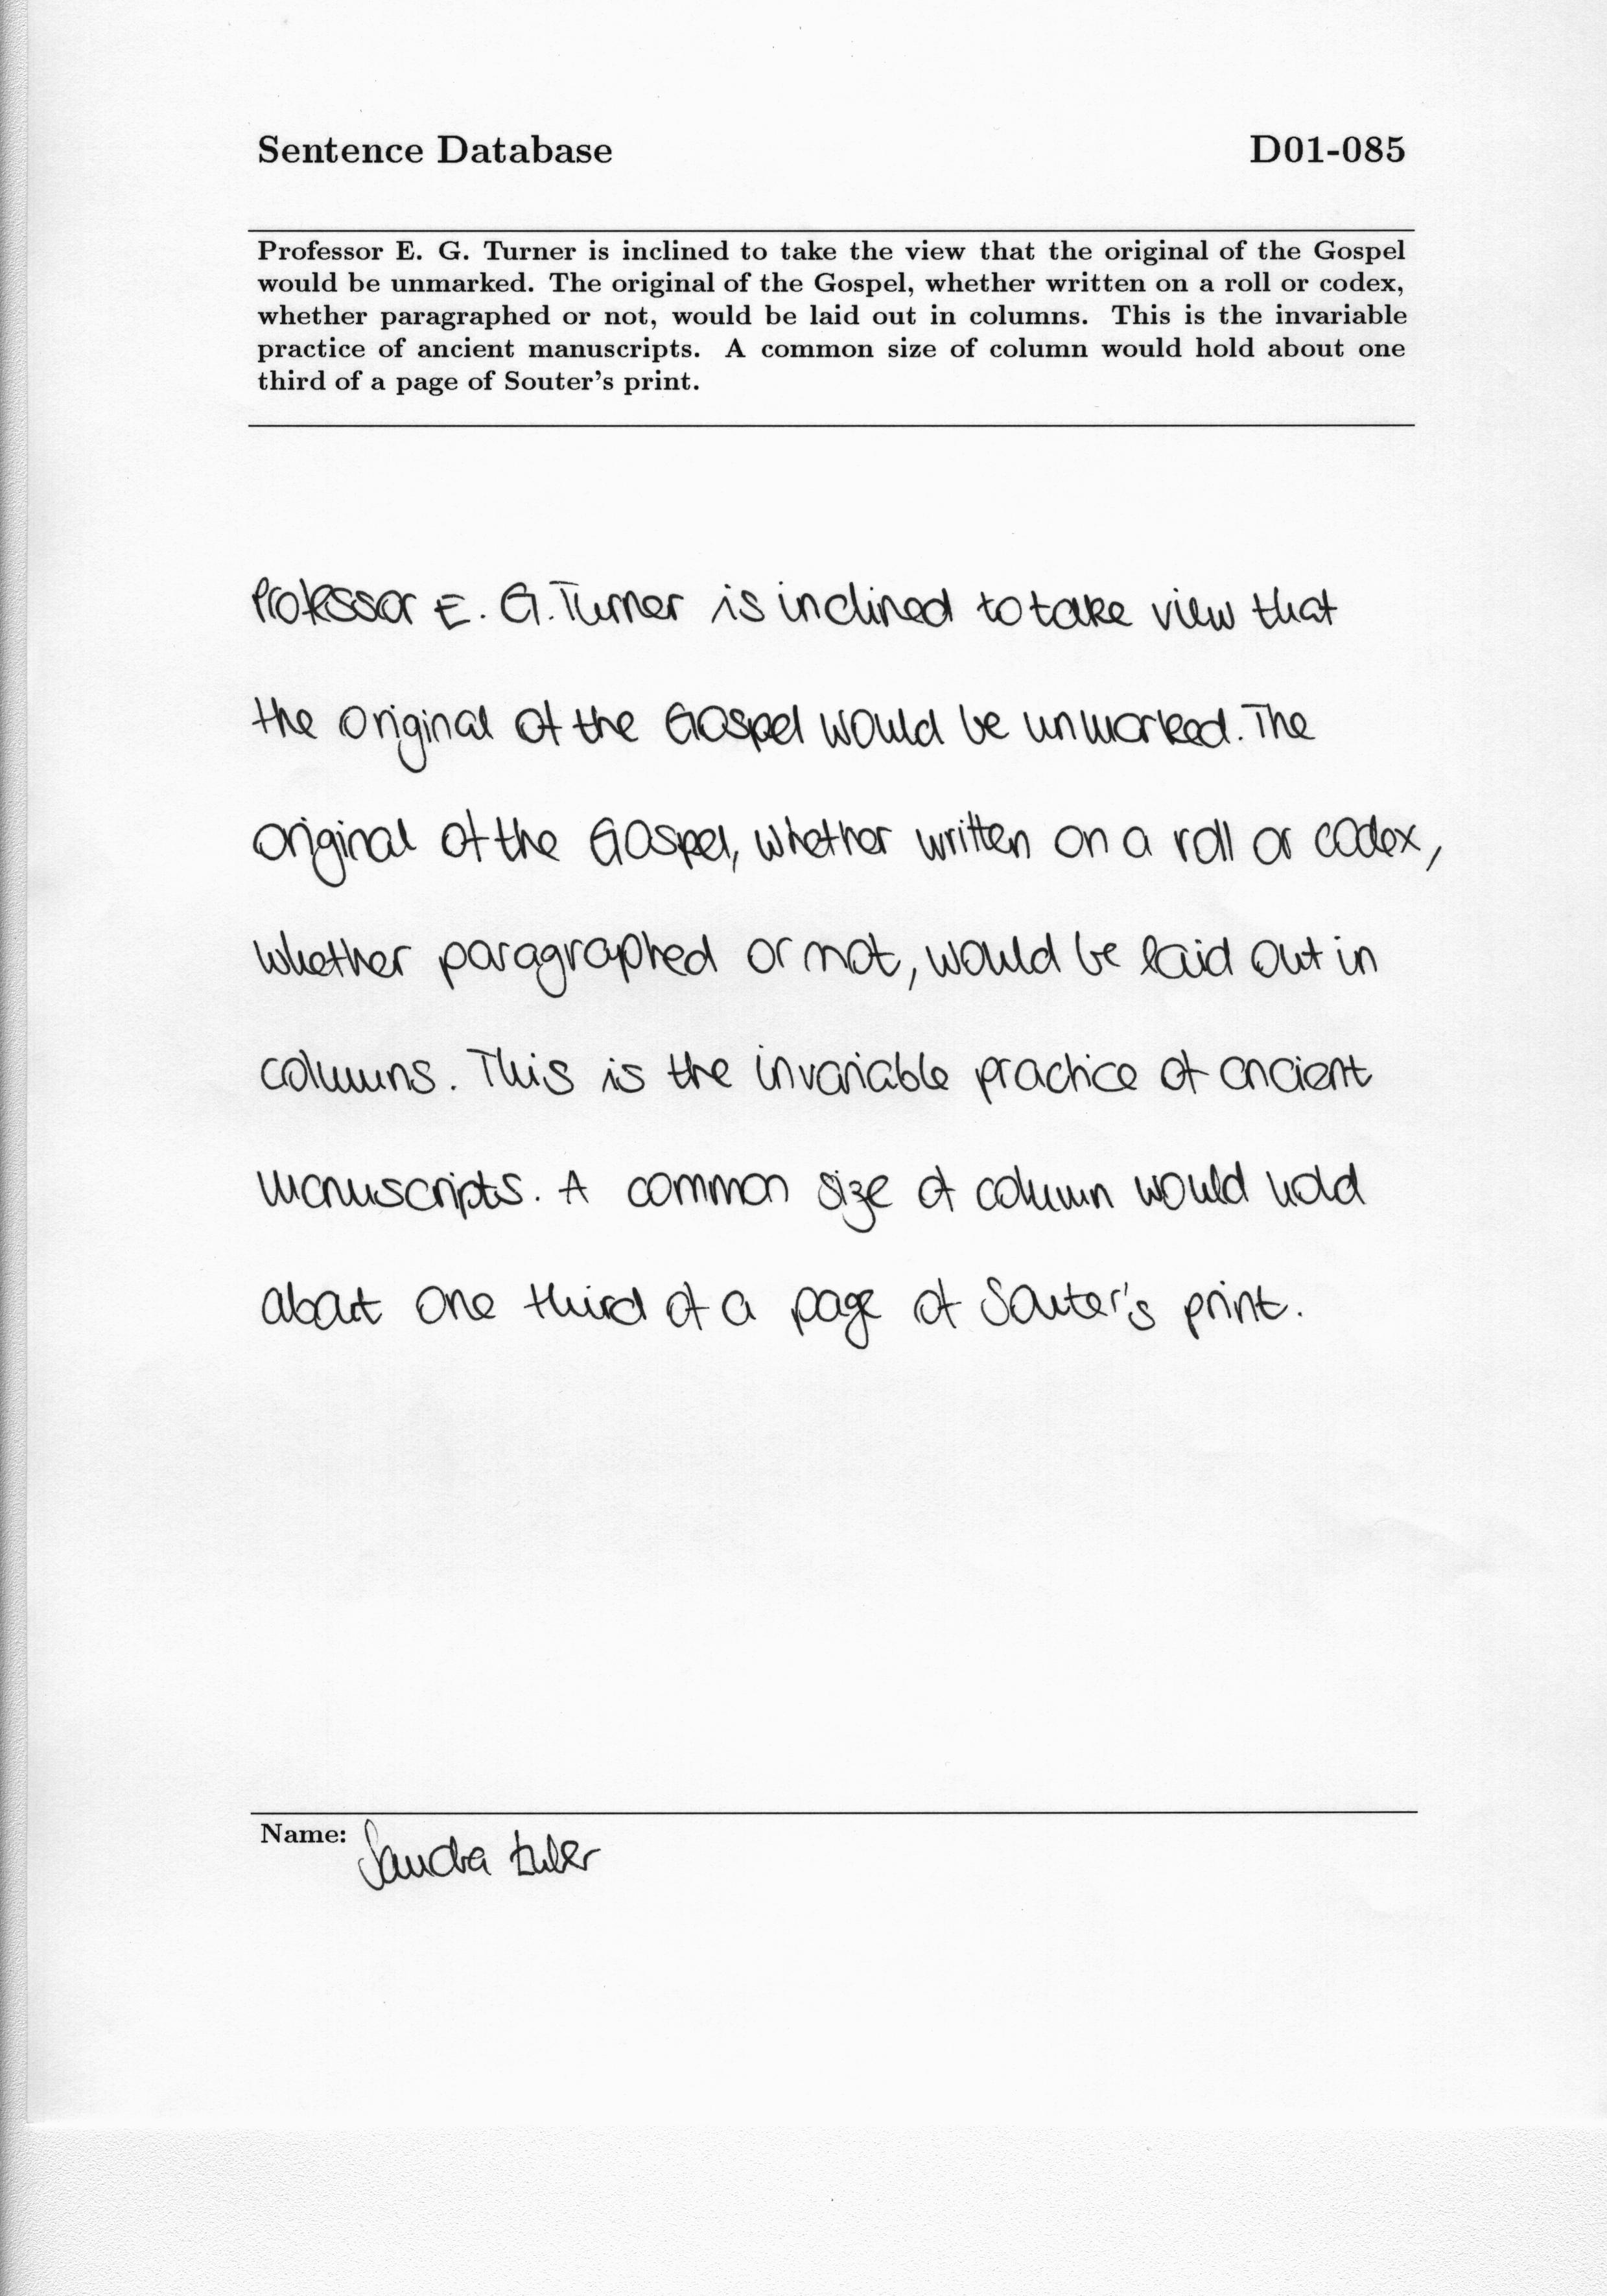 Sentence Database D01-085
Professor E. G. Turner is inclined to take the view that the original of the Gospel
would be unmarked. The original of the Gospel, whether written on a roll or codex,
whether paragraphed or not, would be laid out in columns. This is the invariable
practice of ancient manuscripts. A common size of column would hold about one
third of a page of Souter's print.
Professor E. G. Turner is inclined to take view that
the original of the Gospel would be unmarked. The
original of the Gospel, whether written on a roll or codex,
whether paragraphed or not, would be laid out in
columns. This is the invariable practice of ancient
manuscripts. A common size of column would hold
about one third of a page of Souter's print.
Name: Sandra